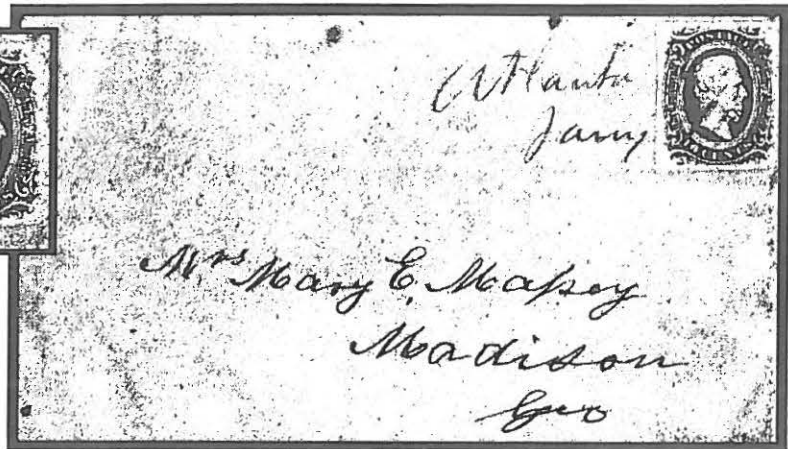 Atlanta
Jany
POSTAGE
Mrs Mary E. Massey
Madison
Geo